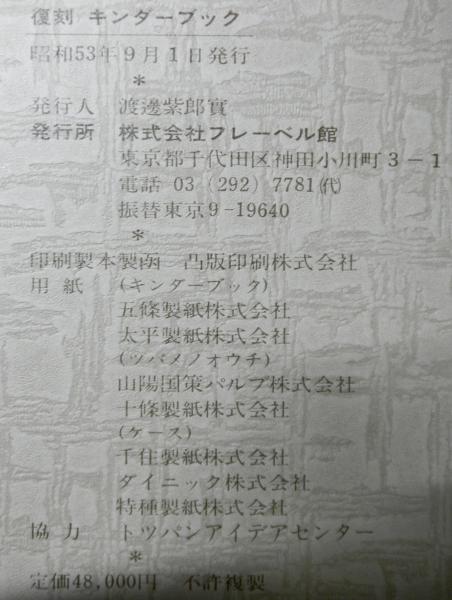 復刻 キンダーブック
昭和53年9月1日発行
*
発行人 渡邊紫郎實
発行所 株式会社フレーベル館
東京都千代田区神田小川町3-1
電話 03 (292) 7781(代)
振替東京9-19640
*
印刷製本製函 凸版印刷株式会社
用紙 (キンダーブック)
五條製紙株式会社
太平製紙株式会社
(ツバメノオウチ)
山陽国策パルプ株式会社
十條製紙株式会社
(ケース)
千住製紙株式会社
ダイニック株式会社
特種製紙株式会社
協力 トッパンアイデアセンター
*
定価48,000円 不許複製